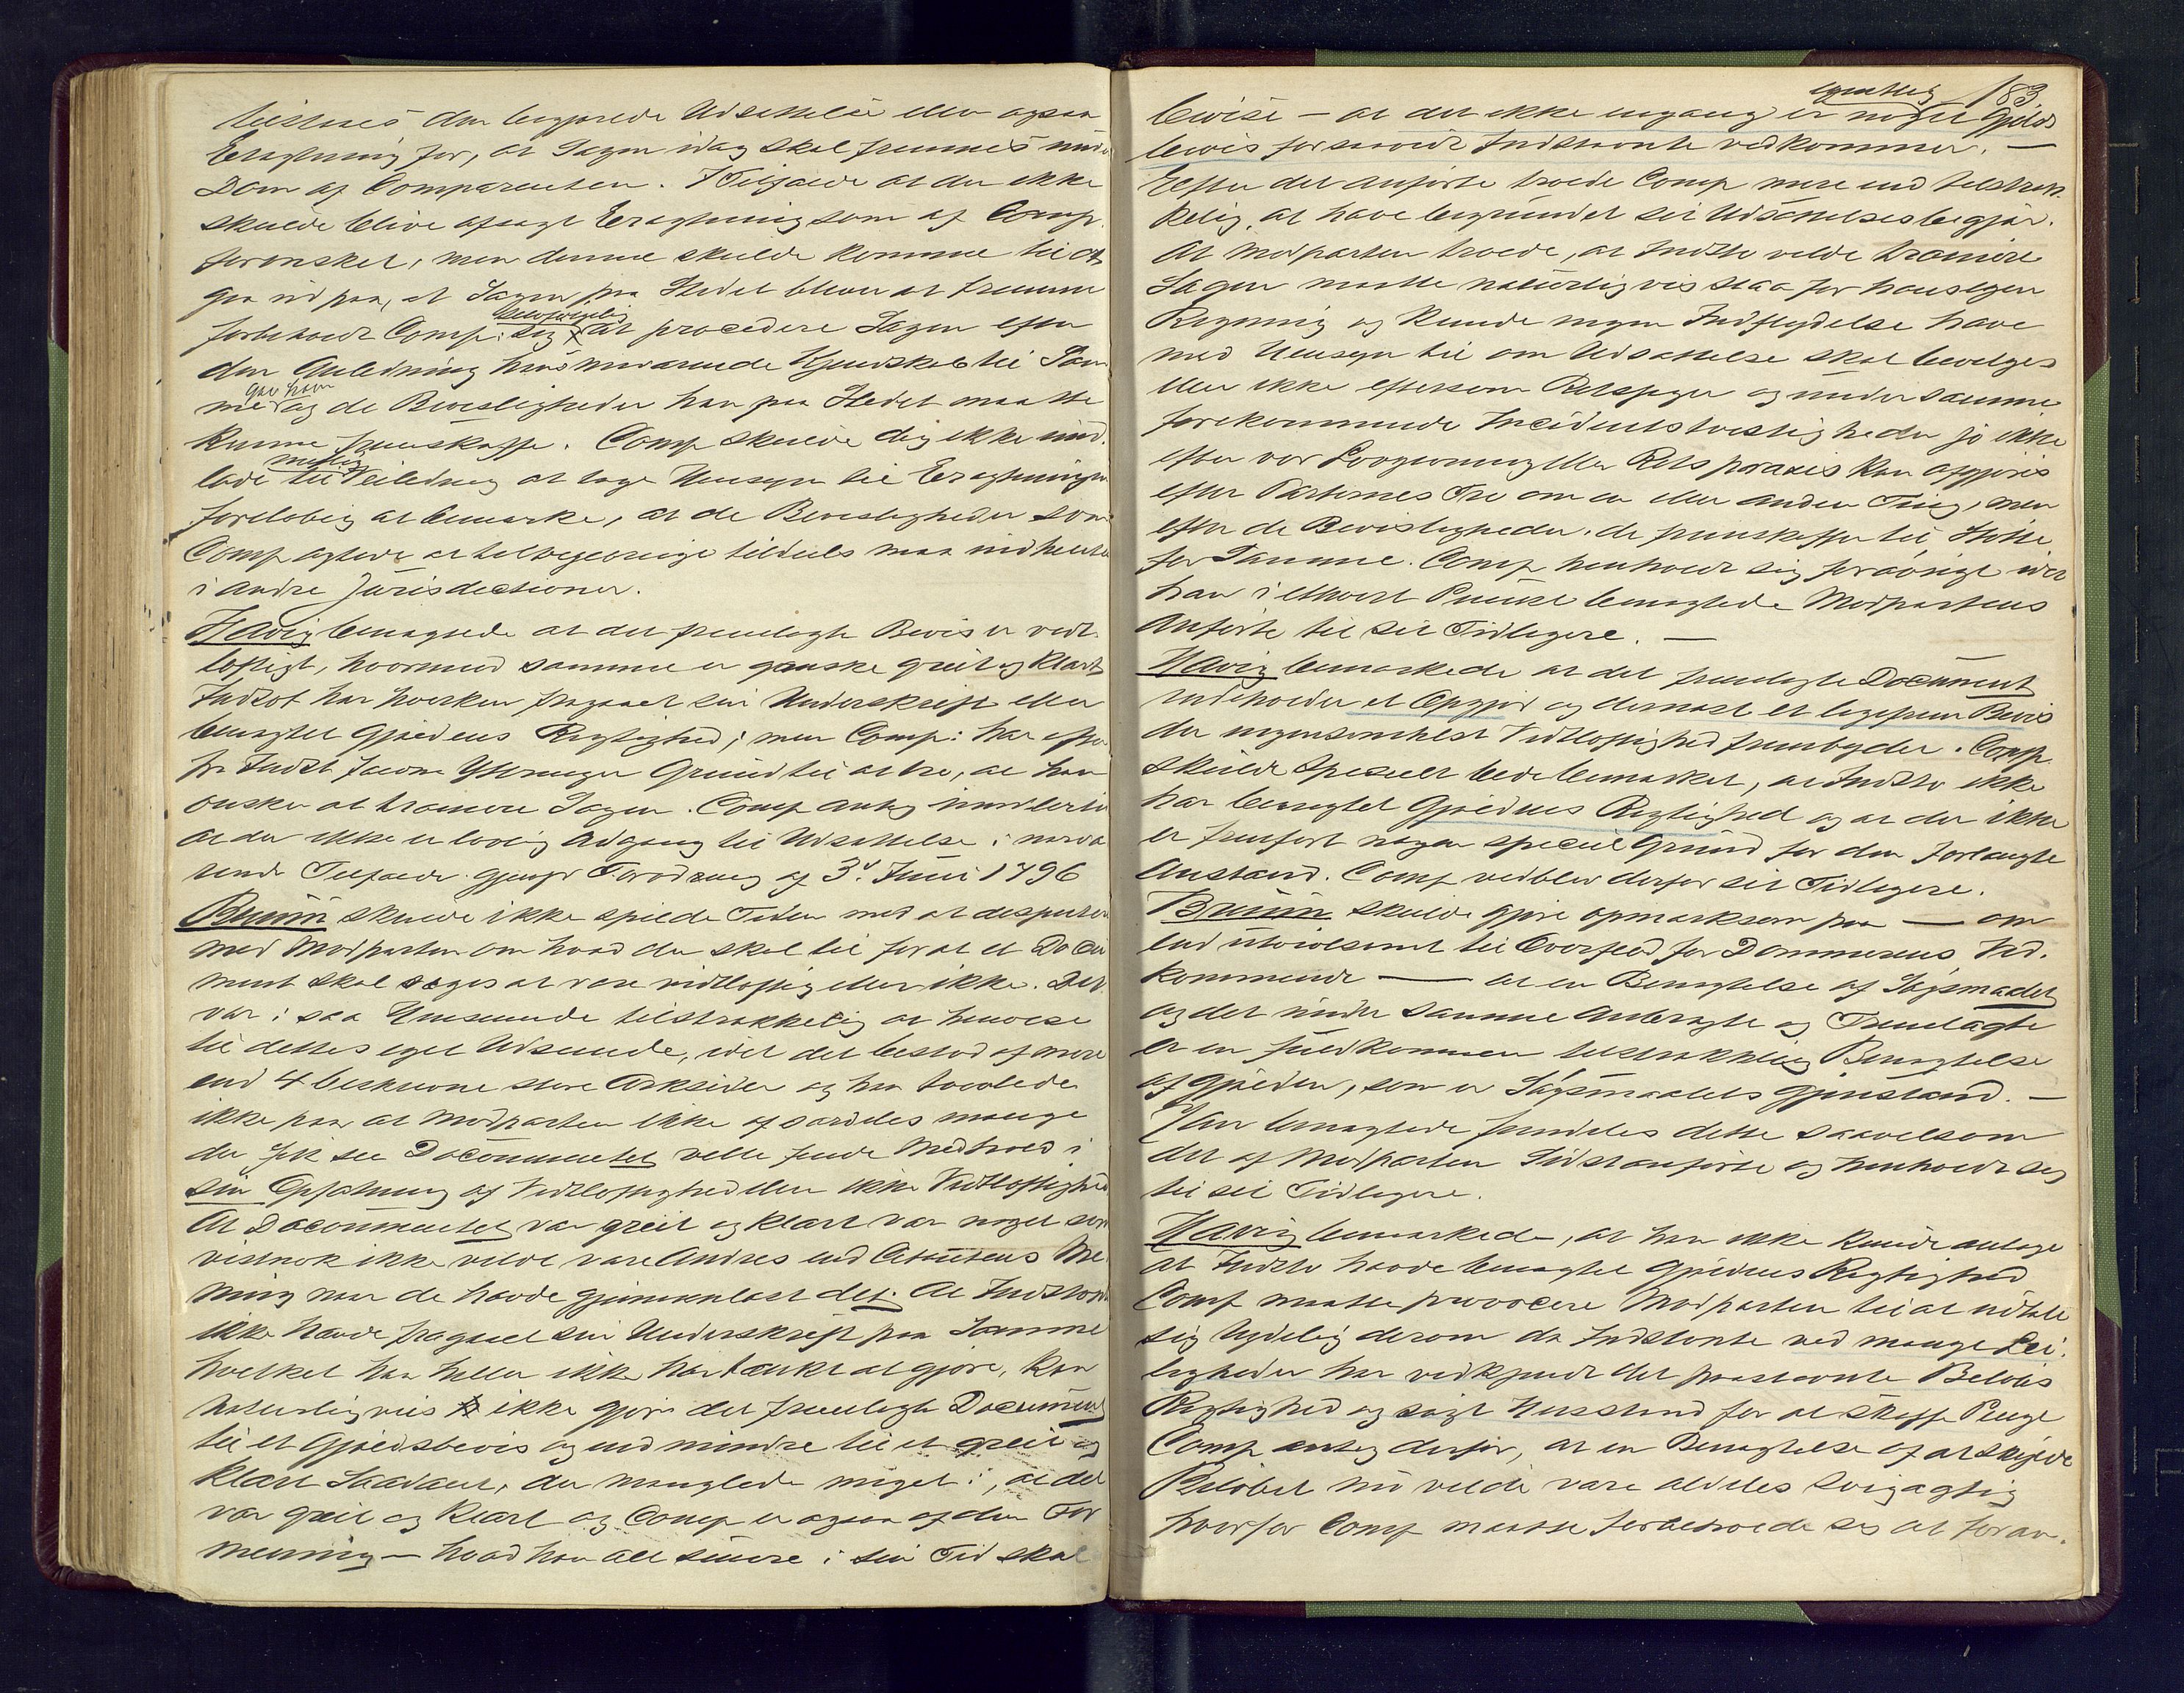 tilstaaes den begjærede Udsættelse eller ogsaa
Eragtning for, at Sagen idag skal fremmes under
Dom af Comparenten. I Tilfælde at der ikke
skulde blive afsagt Eragtning som af Comp.
forønsket, men denne skulde komme til at
gaa ud paa, at Sagen paa Stedet bliver at fremme
forbeholdt Comp: sig selvfølgelig at procedere Sagen efter
den Anledning hans nuværende Kjendskab til Sam
me gav ham og de Bevisligheder han paa Stedet maatte
kunne fremskaffe. Comp skulde dog ikke und.
lade til mulig Veiledning at tage Hensyn til Eragtningen
foreløbig at bemærke, at de Bevisligheder som
Comp agtede at tilveiebringe tildeels maa indhentes
i andre Jurisdictioner.
Havig benægtede at det fremlagte Bevis er vidt.
løftigt, hvorimod samme er ganske greit og klart
Indst har hverken fragaaet sin Underskrift eller
benægtet Gjældens Rigtighed; men Comp: har efter
fra Indst faldne Yttringer Grund til at tro, at han
ønsker at trainere Sagen. Comp antog imidlertid
at der ikke er lovlig Adgang til Udsættelse i nærvæ
rende Tilfælde gjenfr Forordning af 3d Juni 1796
Bruun skulde ikke spilde Tiden med at desputere
med Modparten om hvad der skal til for at et Docu
ment skal siges at være vidtløftig eller ikke. Det
var i saa Henseende tilstrækkelig at henvise
til dettes eget Udseende, idet det bestod af mere
end 4 beskrevne store Arksider og han tvivlede
ikke paa at Modparten ikke af særdeles mange
der fik see Documentet ville finde Medhold i
sin Opfatning af Vidtløftighed eller ikke Vidtløftighed
At Documentet var greit og klart var noget som
vistnok ikke vilde være Andres end Citantens Me
ning naar de havde gjennemlæst det. At Indstevnte
ikke havde fragaaet sin Underskrift paa Samme
hvilket han heller ikke har tænkt at gjøre, kan
naturligviis ikke gjøre det fremlagte Document
til et Gjældsbevis og end mindre til et greit og
klart Saadant, der manglede meget i, at det
var greit og klart og Comp er ogsaa af den For
mening – hvad han alt senere i sin Tid skal
183.
bevise – at det ikke engang er noget egentlig Gjelds
bevis forsaavidt Indstevnte vedkommer. –
Efter det anførte troede Comp mere end tilstræk-
kelig at have begrundet sit Udsættelsesbegjær.
At Modparten troede, at Indste vilde trainere
Sagen maatte naturligvis staa for hans egen
Regning og kunde ingen Indflydelse have
med Hensyn til om Udsættelse skal bevilges
eller ikke eftersom Retssager og under samme
forekommende Incidentstvistigheder jo ikke
efter vor Lovgivning eller Retspraxis kan afgjøres
efter Parternes Tro om en eller anden Ting, men
efter de Bevisligheder, de fremskaffer til Støtte
for Samme. Comp henholdt sig forøvrigt idet
han i ethvert Punct benægtede Modpartens
Anførte til sit Tidligere. –
Havig bemærkede at det fremlagte Document
indeholder et Opgjør og dernæst et ligefrem Bevis
der ingensomhelst Vidtløftighed frembyder. Comp
skulde specielt bede bemærket, at Indste ikke
har benægtet Gjældens Rigtighed og at der ikke
er fremført nogen speciel Grund for den forlangte
Anstand. Comp vedblev derfor sit Tidligere.
Bruun skulde gjøre opmærksom paa – om
end utvivlsomt til Overflod for Dommerens Ved.
kommende – at en Benægtelse af Søgsmaalet
og det under samme Anbragte og Fremlagte
er en fuldkommen tilstrækkelig Benægtelse
af Gjælden, som er Søgsmaalets Gjenstand. –
Han benægtede fremdeles dette saavelsom
det af Modparten Sidstanførte og henholdt sig
til sit Tidligere.
Havig bemærkede, at han ikke kunde antage
at Indste havde benægtet Gjældens Rigtighed
Comp maatte provocere Modparten til at udtale
sig tydelig derom da Indstevnte ved mange Lei.
ligheder har vedkjendt det paastevnte Beløbs
Rigtighed og søgt Henstand for at skaffe Penge
Comp antog derfor, at en Benægtelse af at skylde
Beløbet nu vilde være aldeles svigagtig
hvorfor Comp maatte forbeholde sig at foran.